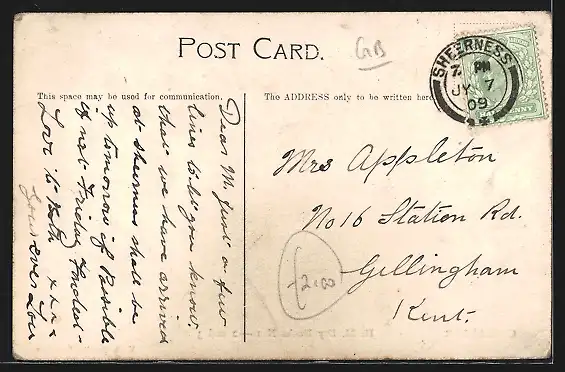 POST CARD.
GB
This space may be used for communication.
The ADDRESS only to be written here
SHEERNESS
7. PM
JY 7
09
PENNY
Dear M. Just a few
lines to let you know
that we have arrived
at sheerness shall be
up tomorrow if Possible
if not Friday Fondest
Love to Both xxxx
Your ever Lou
Mrs Appleton
No 16 Station Rd.
Gillingham
Kent.
£2.00